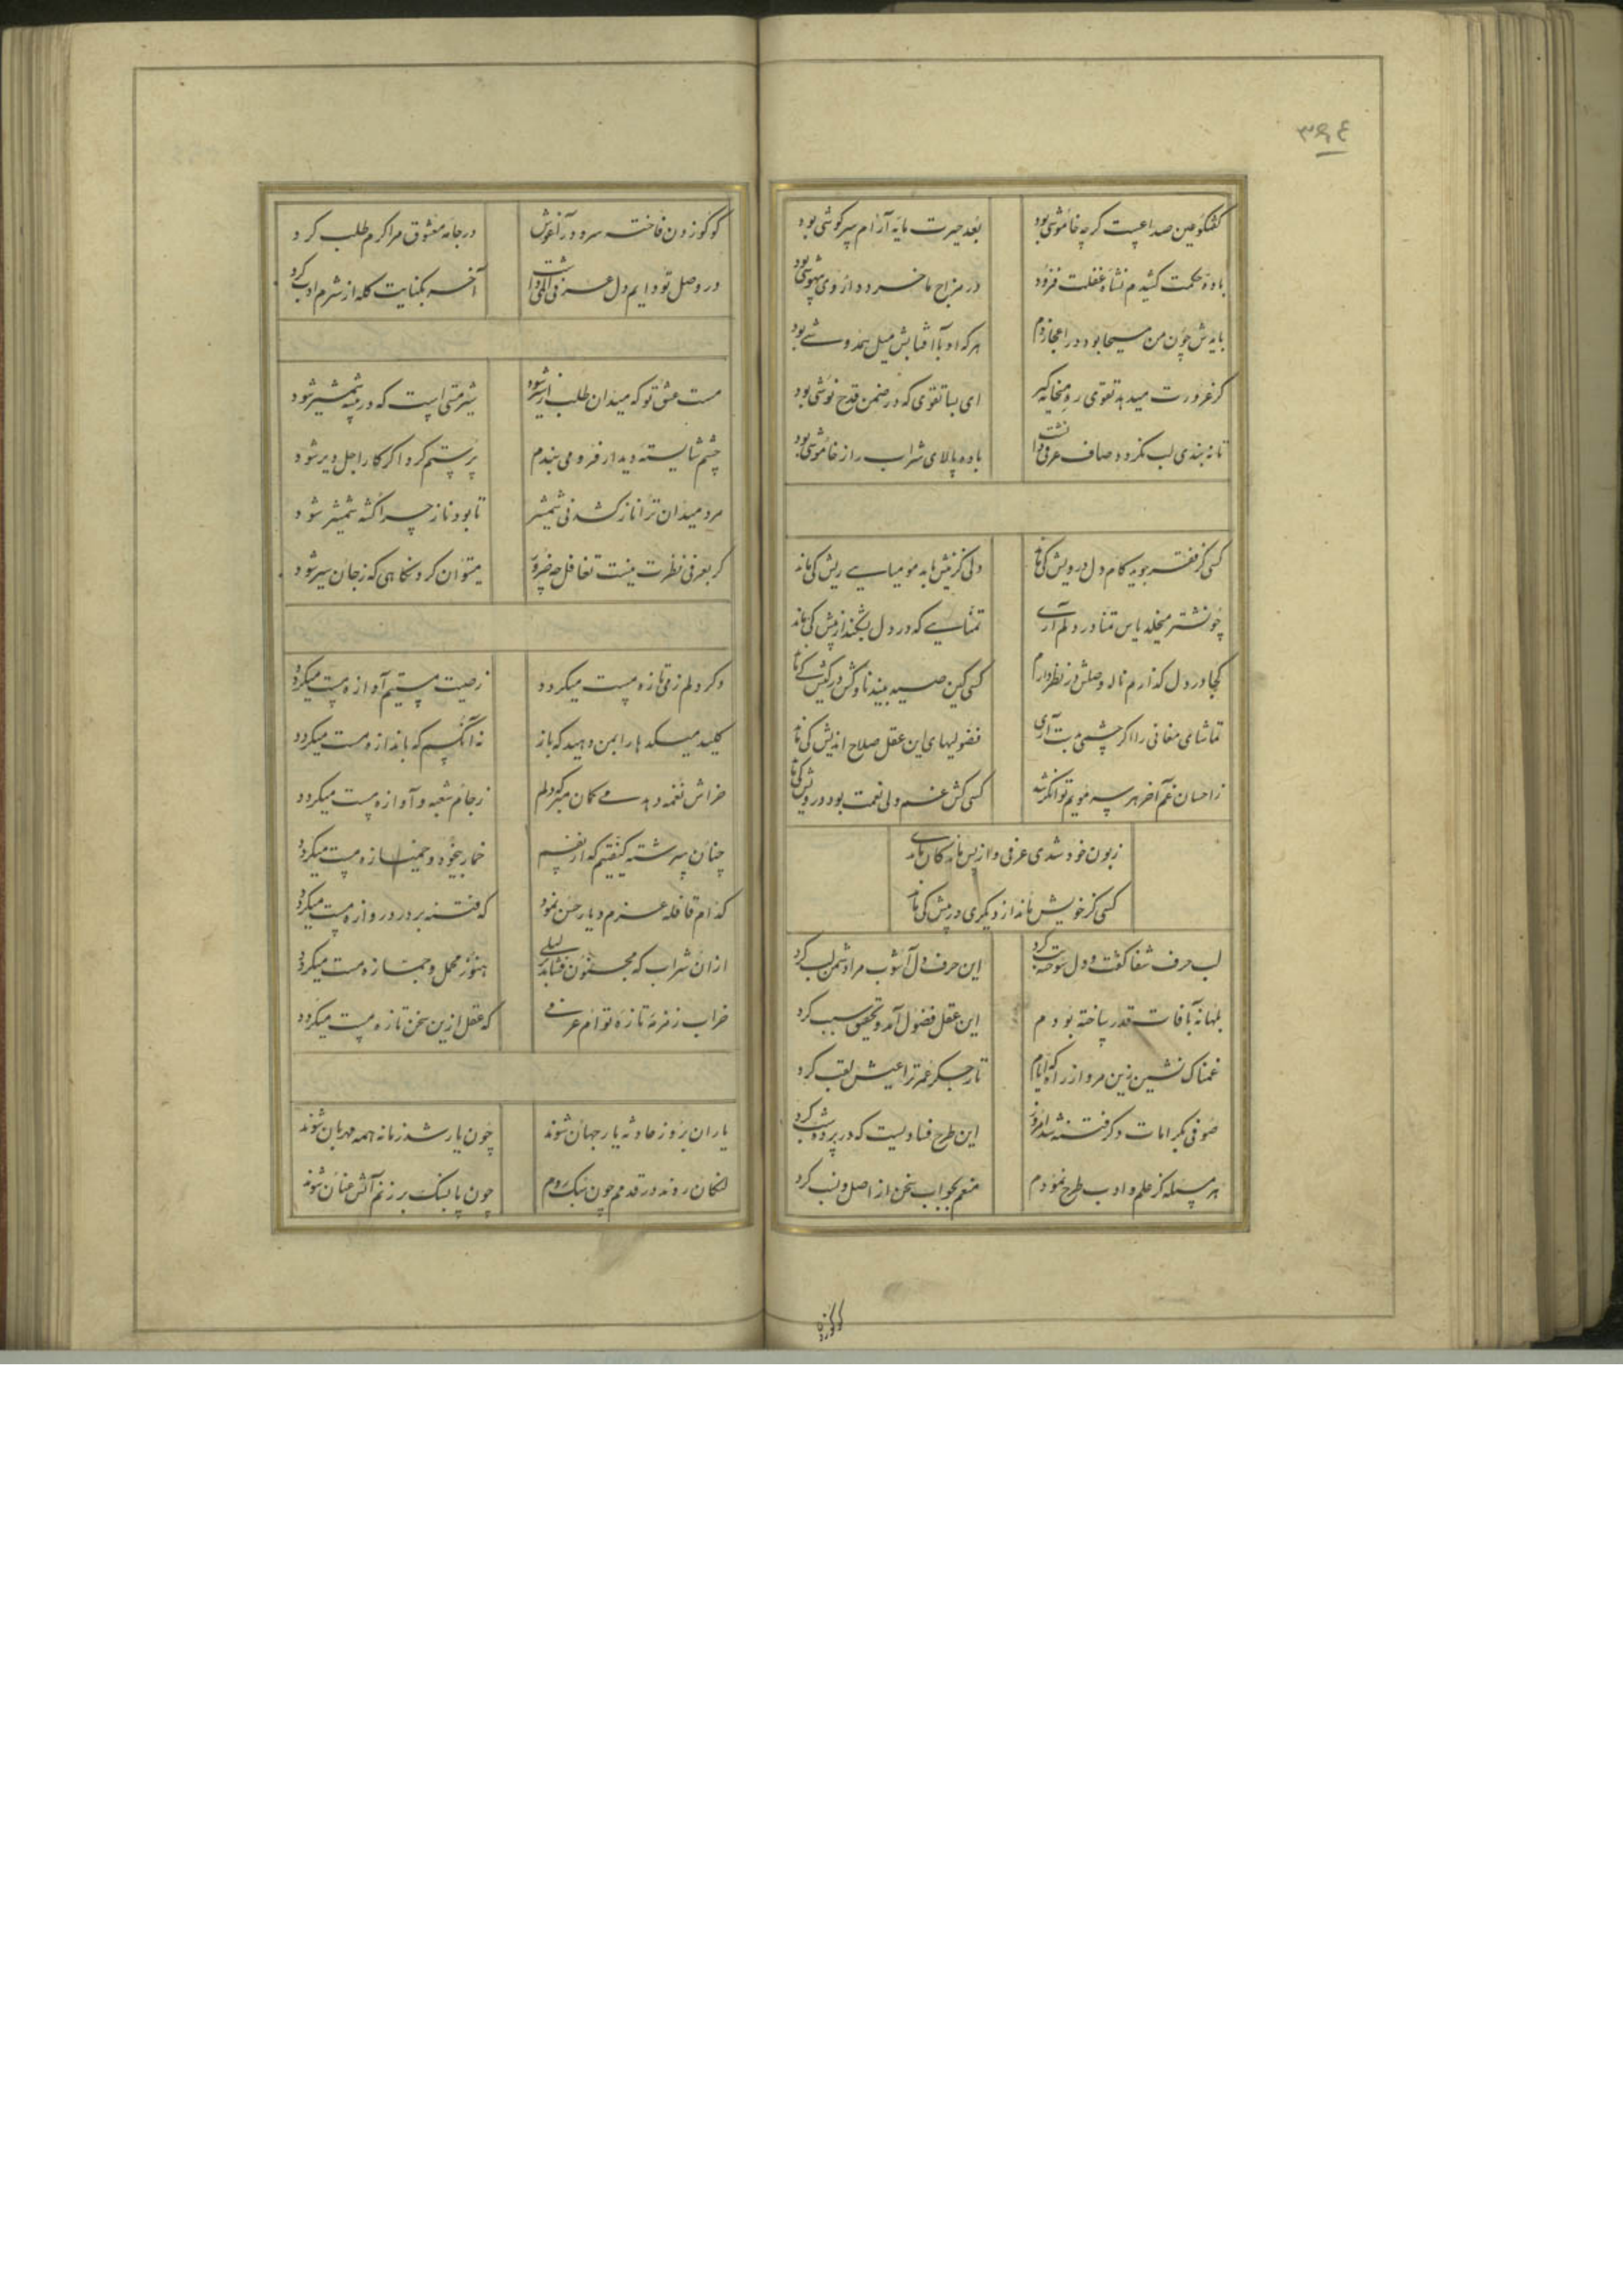 ۳۶۴
گفتگو عین صداعیست کرچه خاموشی بود بعد حیرت مایه آرام سرکوشی بود
باده حکمت کشیدم نشاه غفلت فزود در مزاج ما خرد داروی بیهوشی بود
باید ش چون من مسیحا بود در اعجاز دم هرکه او با آفتابش میل همدوشی بود
کر غرورت میدهد تقوی ره میخانه کیر ای بسا تقوی که در ضمن قدح نوشی بود
تا نه بندی لب نکردد صاف عرفی باده پالای شراب راز خاموشی بود
کسی کز فقر جوید کام دل درویش کی ماند دلی کز نیش با به مومیایی ریش کی ماند
چو نشتر میخلد یاس تمنا در دلم آری تمنایی که در دل بشکند از نیش کی ماند
کجا در دل کذارم ناله وصلش در نظر دارم کسی کین صید بیند ناوکش در کیش کی ماند
تماشای مغانی را اکر چشمی بدست آری فضولیهای این عقل صلاح اندیش کی ماند
ز احسان غم آخر هر سر مویم توانکر شد کسی کش غم ولی نعمت بود درویش کی ماند
زبون خود شدی عرفی و از پس ماندکان ماندی
کسی کز خویش ماند از دیکری در پیش کی ماند
لب حرف شفا کفت و دل سوخته تب کرد این حرف دل آشوب مرا دشمن لب کرد
بآفات قدر ساخته بودم این عقل فضول آمد و تحقیق سبب کرد
غمناک نشین زین مرو از راه که ایام تا رجکر غمر ترا عیش لقب کرد
صوفی بکرامات و کرفتنه شد امروز این طرح فنا ویست که در پرده شب کرد
هر مسئله کز علم و ادب طرح نمودم منعم بجواب سخن از اصل و نسب کرد
کوکوزدن
کوکو زدن فاخته سرو در آغوش در جامه معشوق مرا کرم طلب کرد
در وصل تو دایم دل عرفی کله داشت آخر بکنایت کله از شرم ادب کرد
مست عشق تو که میدان طلب شیر شود شیر مستی است که در بیشه شمشیر شود
چشم شایسته دیدار فرو می بندم پر ستم کرد اکر کار اجل دیر شود
مرد میدان ترا ناز کشد نی شمشیر تا بود ناز چرا کشته شمشیر شود
کر بعرفی نظرت نیست تغافل چه ضرور میتوان کرد نکاهی که ز جان سیر شود
دکر دلم ز می تازه مست میکردد ز صیت مستیم آوازه مست میکردد
کلید میکده ها را بمن دهید که باز نه آنکسم که باندازه مست میکردد
خراش نغمه دهد می کمان مبر که دلم ز جام شعبه و آوازه مست میکردد
چنان سرشته کیفیتم که از نفسم خمار بیخود و خمیازه مست میکردد
کدام قافله عزم دیار حسن نمود که فتنه بر در دروازه مست میکردد
ازان شراب که مجنون فشاند بر لیلی هنوز محمل و جمازه مست میکردد
خراب زمزمه تازه تو ام عرفی که عقل ازین سخن تازه مست میکردد
یاران بروز حادثه یار جهان شوند چون یار شد زمانه همه مهربان شوند
لنکان روند در قدمم چون سبک روم چون پا بسنک بر زنم آتش عنان شوند